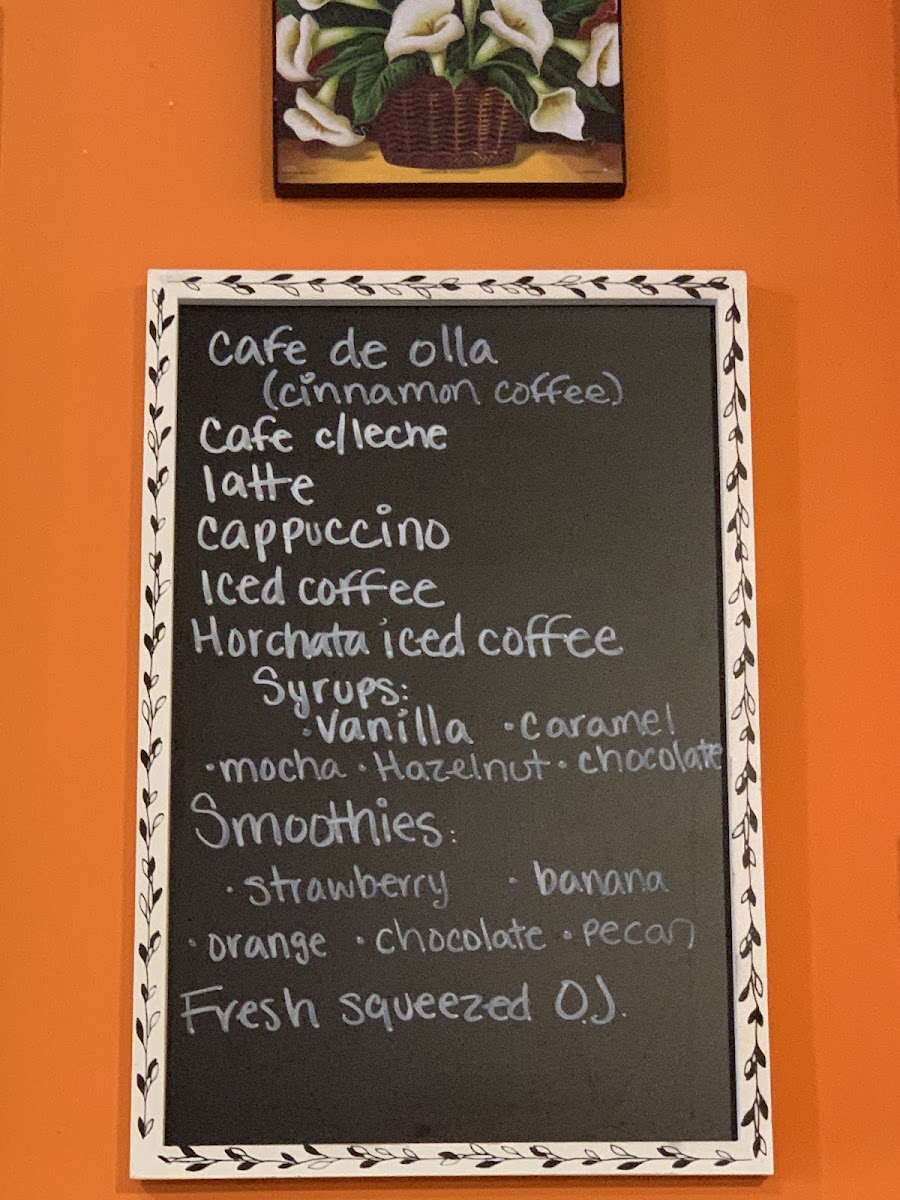 Cafe de olla
(cinnamon coffee)
Cafe c/leche
latte
cappuccino
Iced coffee
Horchata iced coffee
Syrups:
·Vanilla ·caramel
·mocha ·Hazelnut ·chocolate
Smoothies:
·strawberry ·banana
·orange ·chocolate ·pecan
Fresh squeezed O.J.